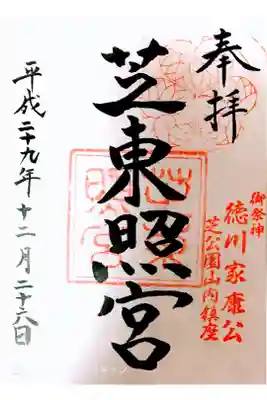 奉拝
御祭神
徳川家康公
芝公園山内鎮座
芝東照宮
平成二十九年十二月二十六日